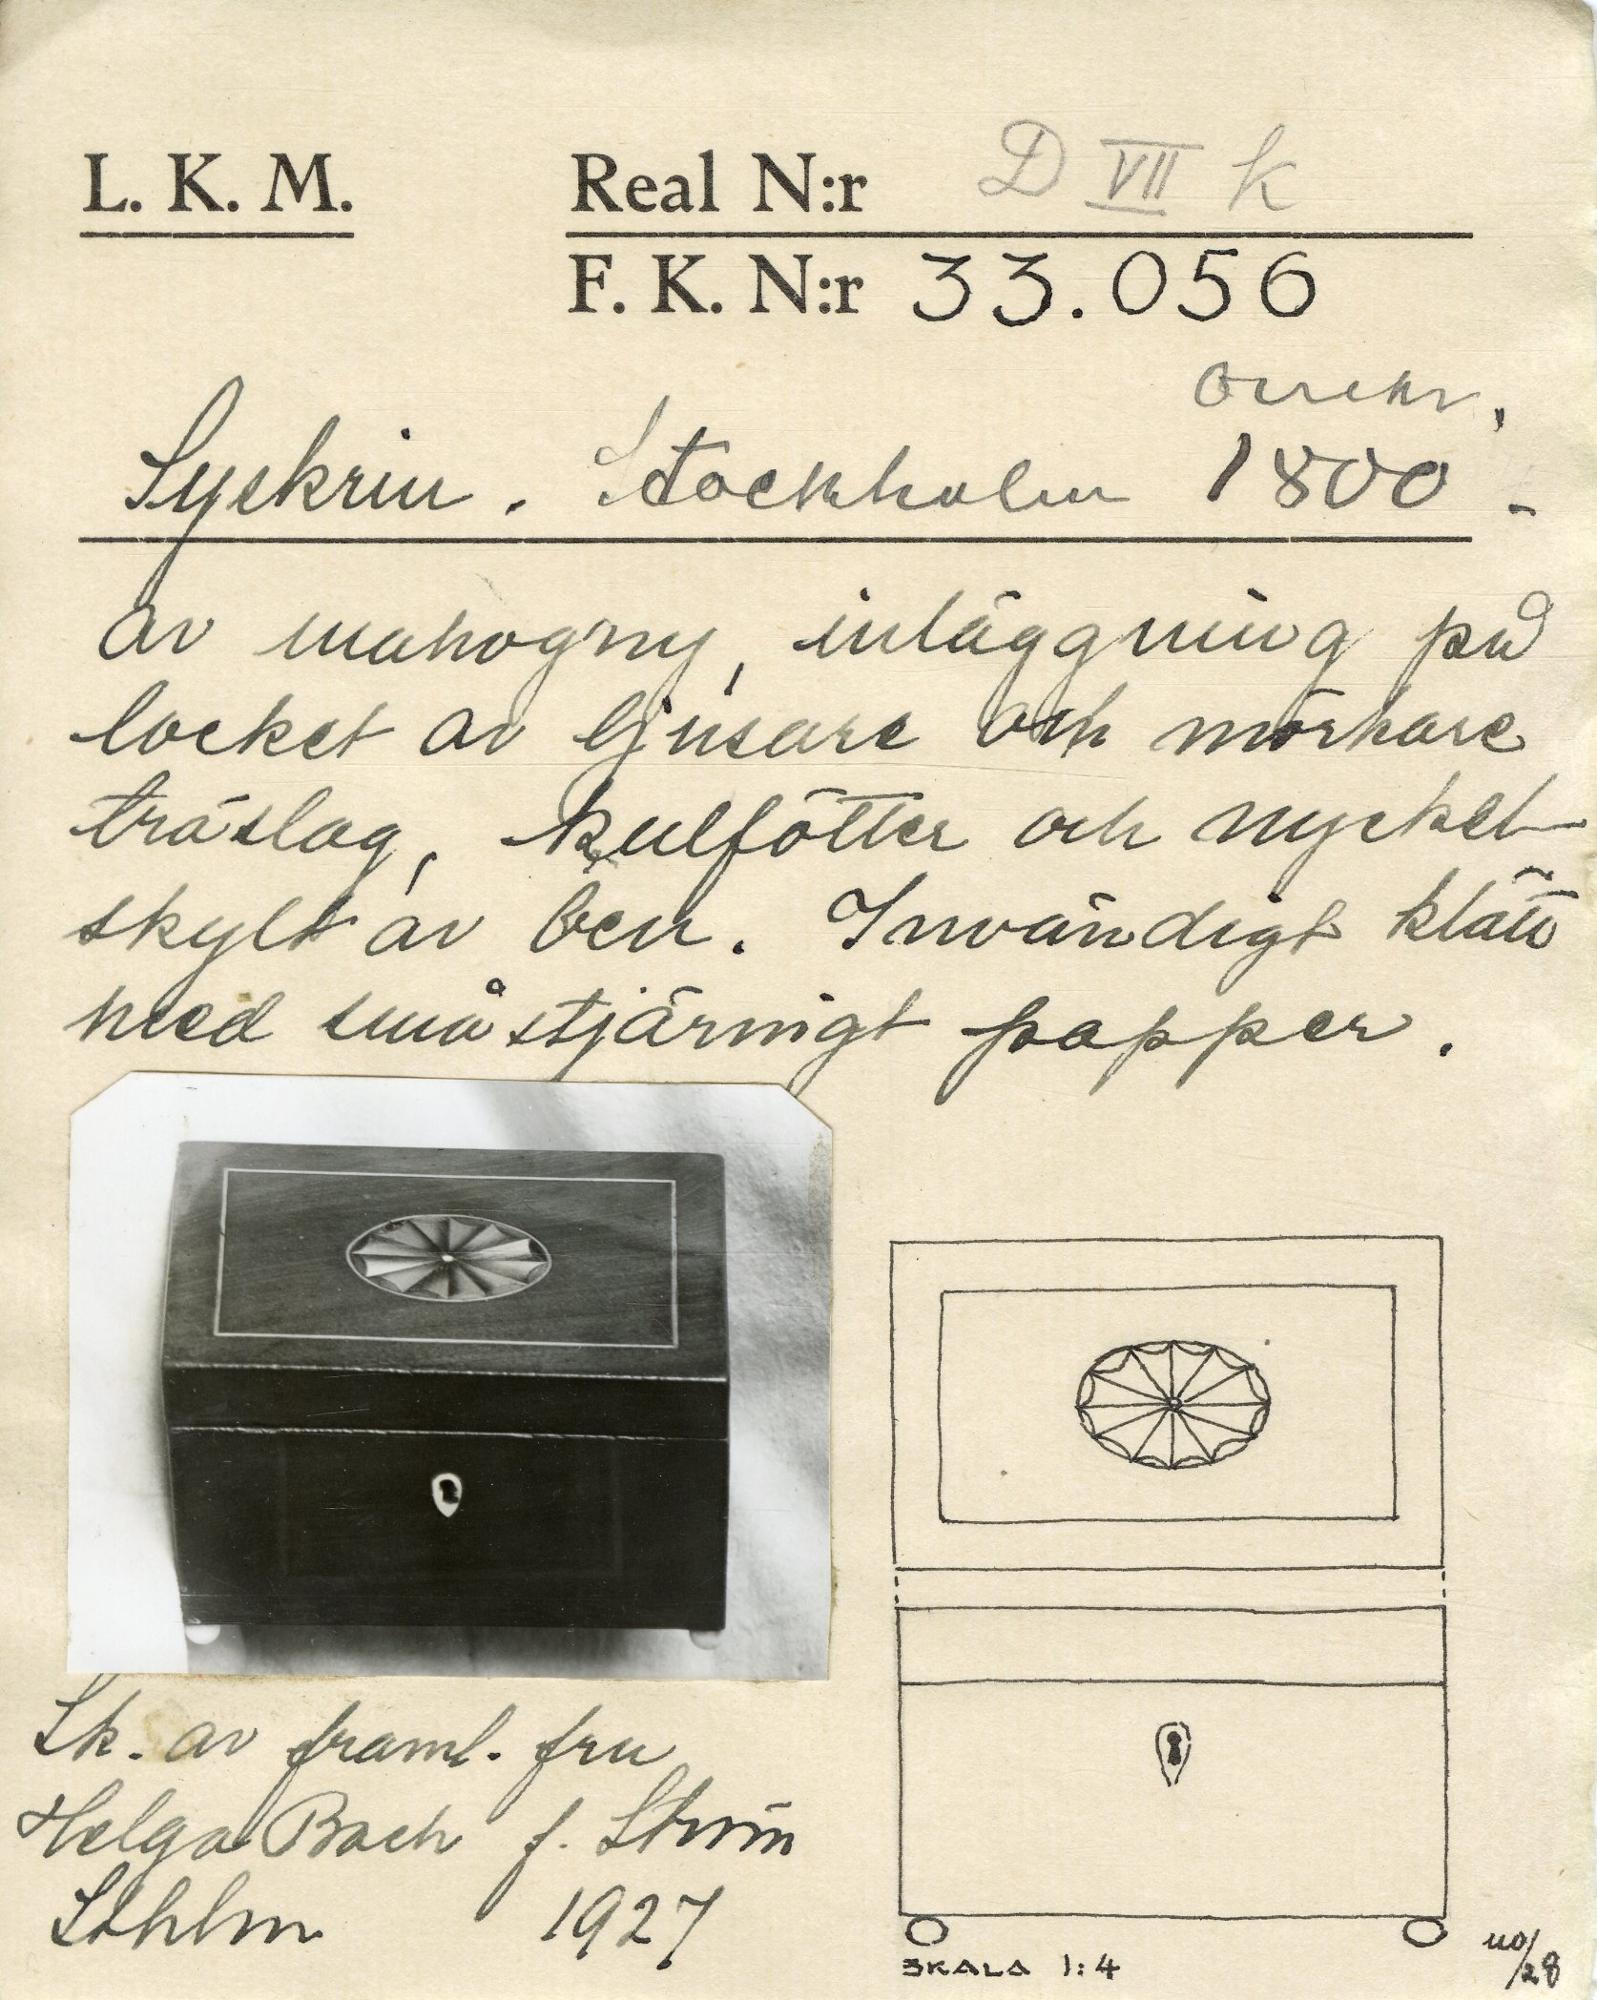 L. K. M. Real N:r D VII K
F. K. N:r 33.056
omkr.
Syskrin. Stockholm 1800 -
av mahogny, inläggning på
locket av ljusare och mörkare
träslag, kulfötter och nyckel-
skylt av ben. Invändigt klätt
med småstjärnigt papper.
Sk. av framl. fru
Helga Bach f. Ström
Sthlm 1927
SKALA 1:4